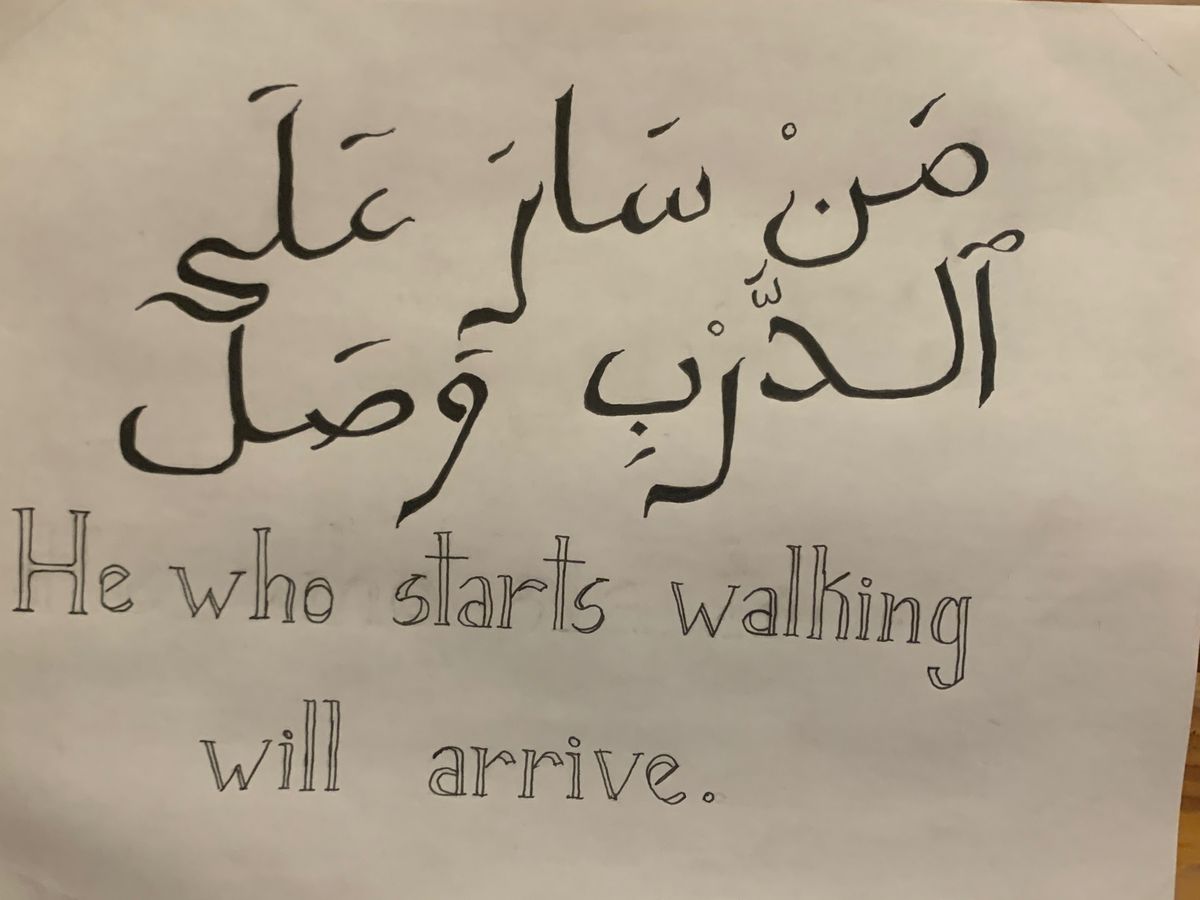 مَنْ سَارَ عَلَى
ٱلدَّرْبِ وَصَل
He who starts walking
will arrive.